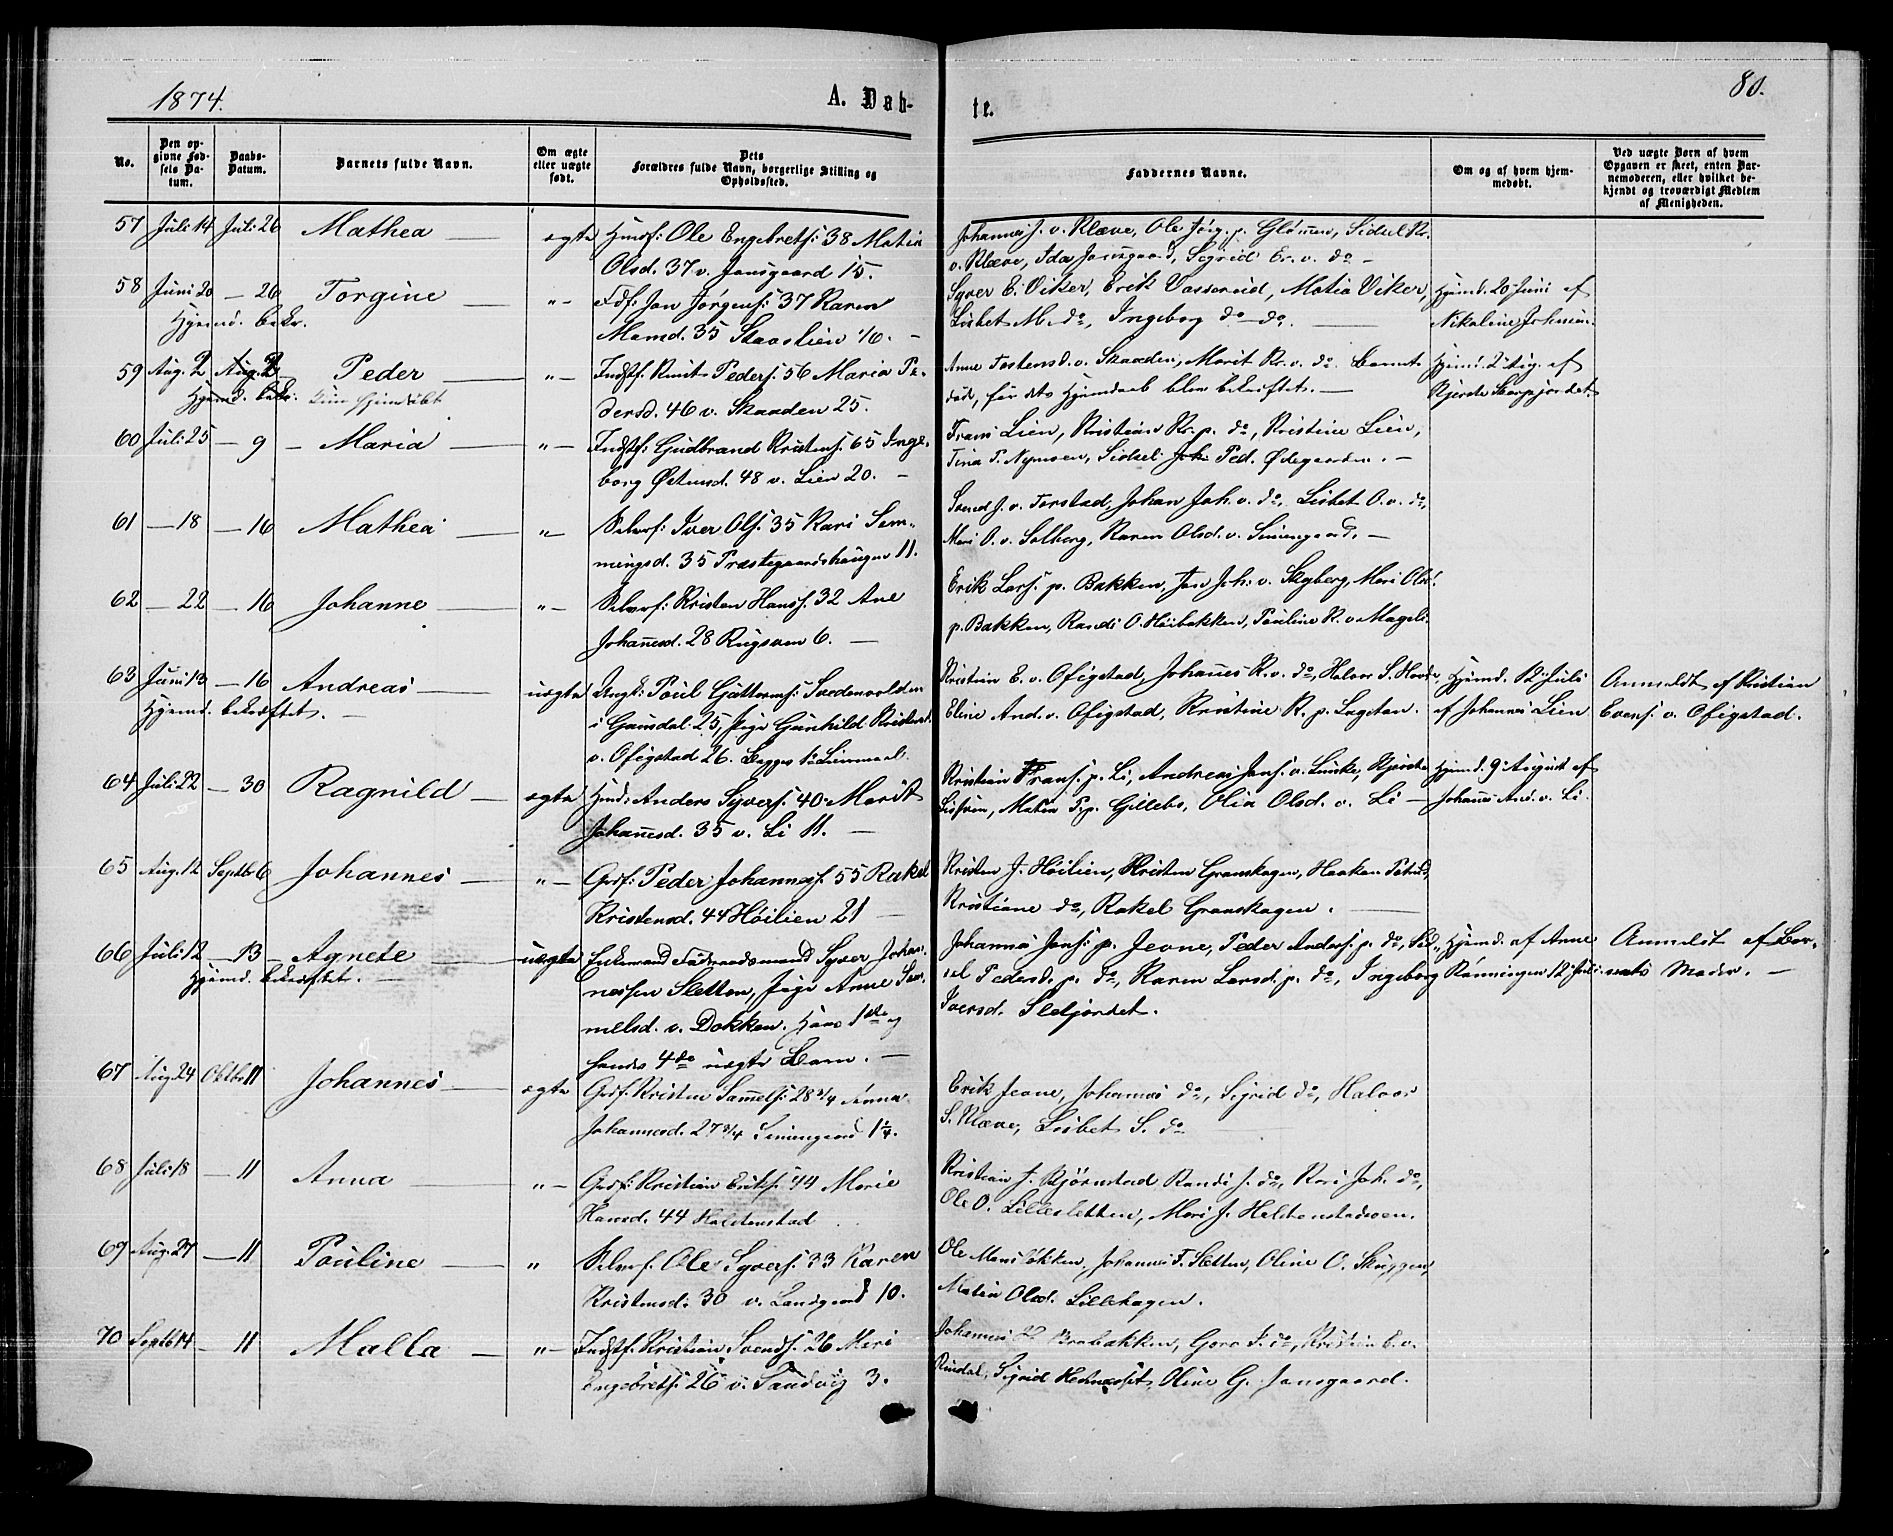 1874.
A. Døb-
te.
80.
No.
Den op-
givne Fød-
sels Da-
tum.
Daabs-
Datum.
Barnets fulde Navn.
Om ægte
eller uægte
født.
Dets
Forældres fulde Navn, borgerlige Stilling og
Opholdssted.
Faddernes Navne.
Om og af hvem hjem-
medøbt.
Ved uægte Børn af hvem
Opgaven er skeet, enten Bar-
nemoderen, eller hvilket be-
kjendt og troværdigt Medlem
af Menigheden.
57 Juli 14 Juli 26 Mathea — ægte Huusf: Ole Engebretsf: 38 Matia
Olsd. 37 v. Jansgaard 15.
Johannes J. v. Klæve, Ole Jörg. p. Glömmen, Sidsel Kr.
v. Klæve, Ida Jansgaard, Sigrid Er. v. do —
58 Juni 20 — 26 Torgine — „ — Fdf: Jan Jörgensf: 37 Karen
Hjemd. bekr.
Mamd. 35 Staastien 10. —
Syver E. Viker, Erik Vasserud, Matia Viker,
Lisbet M. do, Ingeborg do do. —
Hjemd. 20 Juni af
Nikoline Johnsen.
59 Aug. 2 Aug. 2 Peder — „ — Indstf: Knut Pedersf. 56 Maria Pe-
Hjemd. bekr. Kun hjemdöbt
dersd. 46 v. Skaaden 25.
Anne Tostensd. v. Skaaden, Marit Kr. v. do. Barnet
död, för dets Hjemdaab blev bekræftet. —
Hjemd. 2 Aug. af
Kjersti Skarpjordet.
60 Juli 25 — 9 — Maria — „ — Indstf: Gudbrand Kristensf. 65 Inge-
borg Østensd. 48 v. Lien 20. —
Frans Lien, Kristian Kr. p. do, Kristine Lien,
Tina P. Nymoen, Sidsel Joh. Ped. Ødegaarden. —
61 — 18 — 16 Mathea — „ Selvf: Iver Olsf. 35 Kari Sem-
mingsd. 35 Præstegaardshaugen 11.
Svend J. v. Torstad, Johan Joh. v. do, Lisbet O. v. do,
Mari O. v. Solberg, Karen Olsd. v. Simengaard. —
62 — 22 — 16 Johanne — „ — Selvf: Kristen Hansf. 32 Ane
Johannesd. 28 Rugsveen 6. —
Erik Larsf. p. Bakken, Jan Joh: v. Skyberg, Mari Olsd.
p. Bakken, Randi O. Høibakken, Pauline K. v. Mageli.
63 Juni 13 — 16 Andreas — uægte Ungk: Poul Guttormsf: Svedenvolden
Hjemd. bekræftet. —
i Gausdal 25, Pige Gunhild Kristens.
v. Ofigstad 26. Begges 1ste Leiermaal.
Kristian E. v. Ofigstad, Johannes K. v. do, Halvor S. Hovde,
Eline And. v. Ofigstad, Kristine K. p. Engstan.
Hjemd. 12 Juli
af Johannes Lien
Anmeldt af Kristian
Evensf. v. Ofigstad.
64 Juli 22 — 30 Ragnild — ægte Hmd: Anders Syversf: 40 Marit
Johannesd. 35 v. Li 11. —
Kristian Fransf: p. Li, Andreas Jansf. v. Linke, Kjersti
Lisveen, Matia P. p. Gillebo, Olia Olsd. v. Li —
Hjemd. 9 August af
Johannes And. v. Li.
65 Aug. 12 Septbr 6 Johannes — „ — Grdf: Peder Johannesf. 55 Rakel
Kristensd. 44 Höilien 21 —
Kristen J. Höilien, Kristen Granskagen, Haaken Petrud,
Kristiane do, Rakel Granskagen. —
66 Juli 12 — 13 — Agnete — uægte Enkemand Föderaadsmand Syver Johan-
Hjemd. bekræftet. —
nessen Sletten, Pige Anne Sam-
melsd. v. Dokken. Hans 1ste og
hendes 4de uægte Barn. —
Johannes Jansf: p. Jevne, Peder Andersf. p. do, Sid-
sel Pedersd. p. do, Karen Larsd. p. do, Ingeborg
Iversd. Sletjordet.
Hjemd. af Anne
Rönningen 12 Juli
Anmeldt af Bar-
nets Moder. —
67 Aug 24 Oktbr 11 Johannes — ægte Grdf: Kristen Samelsf: 28 3/4 Anna
Johannesd. 27 3/4 Simengaard 1 1/4.
Erik Jevne, Johannes do, Sigrid do, Halvor
S. Klæve, Lisbet S. do
68 Juli 18 — 11 Anna — „ — Grdf: Kristian Eriksf. 44 Marie
Hansd. 44 Holstenstad
Kristian J. Björnstad, Randi J. do, Kari Joh. do,
Ole O. Lillesletten, Mari J. Holstenstadveen.
69 Aug. 27 — 11 Pouline — „ Selvf. Ole Syversf. 33 Karen
Kristensd. 30 v. Landgaard 10.
Ole Mansløkken, Johannes F. Sletten, Oline O. Skuggen,
Matia Olsd. Lillehagen.
70 Septb 14 — 11 Malla — „ — Indstf. Kristian Svendsf. 26 Mari
Engebretsf: 26 v. Sandvig 3.
Johannes Brobakken, Goro J. do, Kristian E. v.
Rindal, Sigrid Hemnerset, Oline G. Jansgaard.